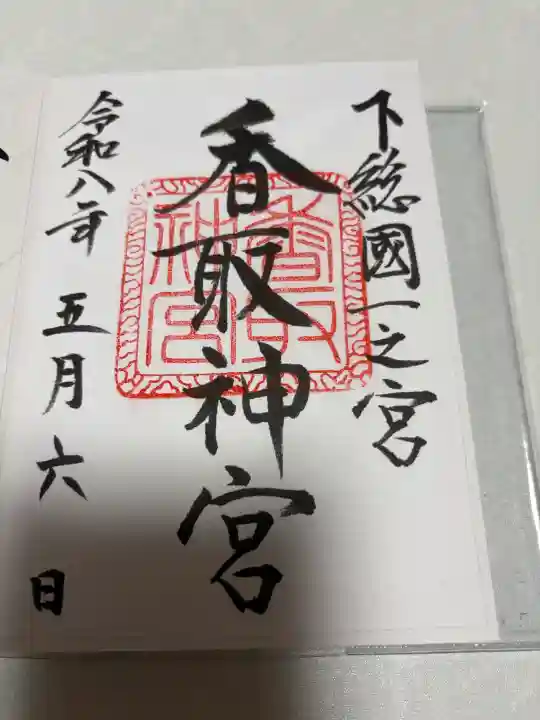 下総國一之宮
香取神宮
香取神宮
令和八年 五月六日